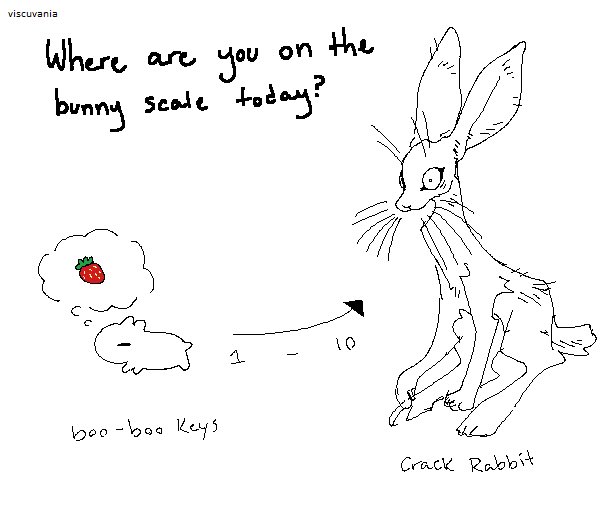 viscuvania
Where are you on the
bunny scale today?
1 - 10
boo-boo keys
Crack Rabbit